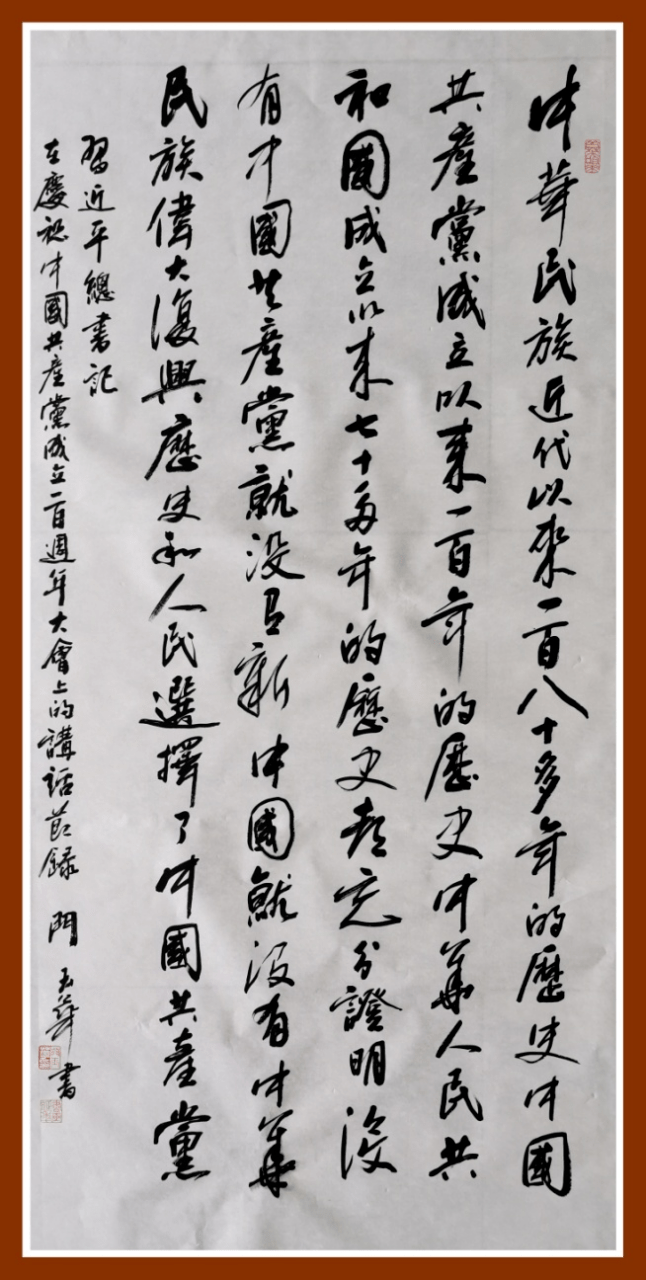 中華民族近代以來一百八十多年的歷史中國
共產黨成立以来一百年的歷史中華人民共
和國成立以来七十多年的歷史都充分證明沒
有中國共產黨就没有新中國就沒有中華
民族偉大復興歷史和人民選擇了中國共產黨
習近平總書記
在慶祝中國共產黨成立一百週年大會上的講話節録
門玉華書